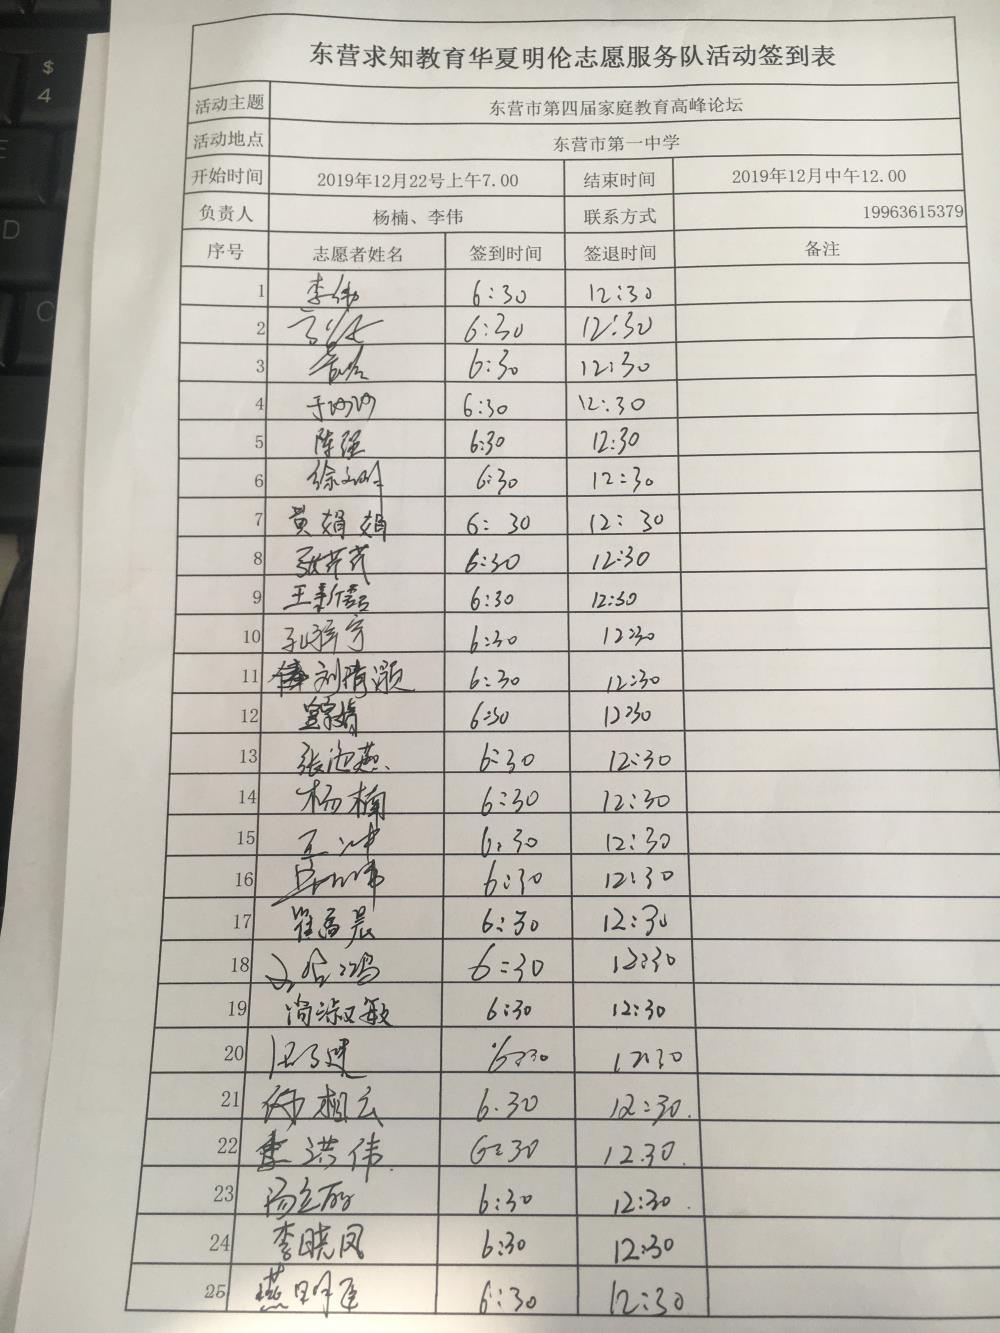 $
4
E
D
C
东营求知教育华夏明伦志愿服务队活动签到表
活动主题 东营市第四届家庭教育高峰论坛
活动地点 东营市第一中学
开始时间 2019年12月22号上午7.00 结束时间 2019年12月中午12.00
负责人 杨楠、李伟 联系方式 19963615379
序号 志愿者姓名 签到时间 签退时间 备注
1 李伟 6:30 12:30
2 6:30 12:30
3 6:30 12:30
4 6:30 12:30
5 陈强 6:30 12:30
6 6:30 12:30
7 黄娟娟 6:30 12:30
8 6:30 12:30
9 6:30 12:30
10 6:30 12:30
11 刘 6:30 12:30
12 6:30 12:30
13 张 燕 6:30 12:30
14 杨楠 6:30 12:30
15 6:30 12:30
16 6:30 12:30
17 崔 晨 6:30 12:30
18 6:30 12:30
19 尚淑敏 6:30 12:30
20 6:30 12:30
21 6.30 12:30.
22 李洪伟 6:30 12.30.
23 6:30 12:30.
24 李晓凤 6:30 12:30
25 燕明 6:30 12:30